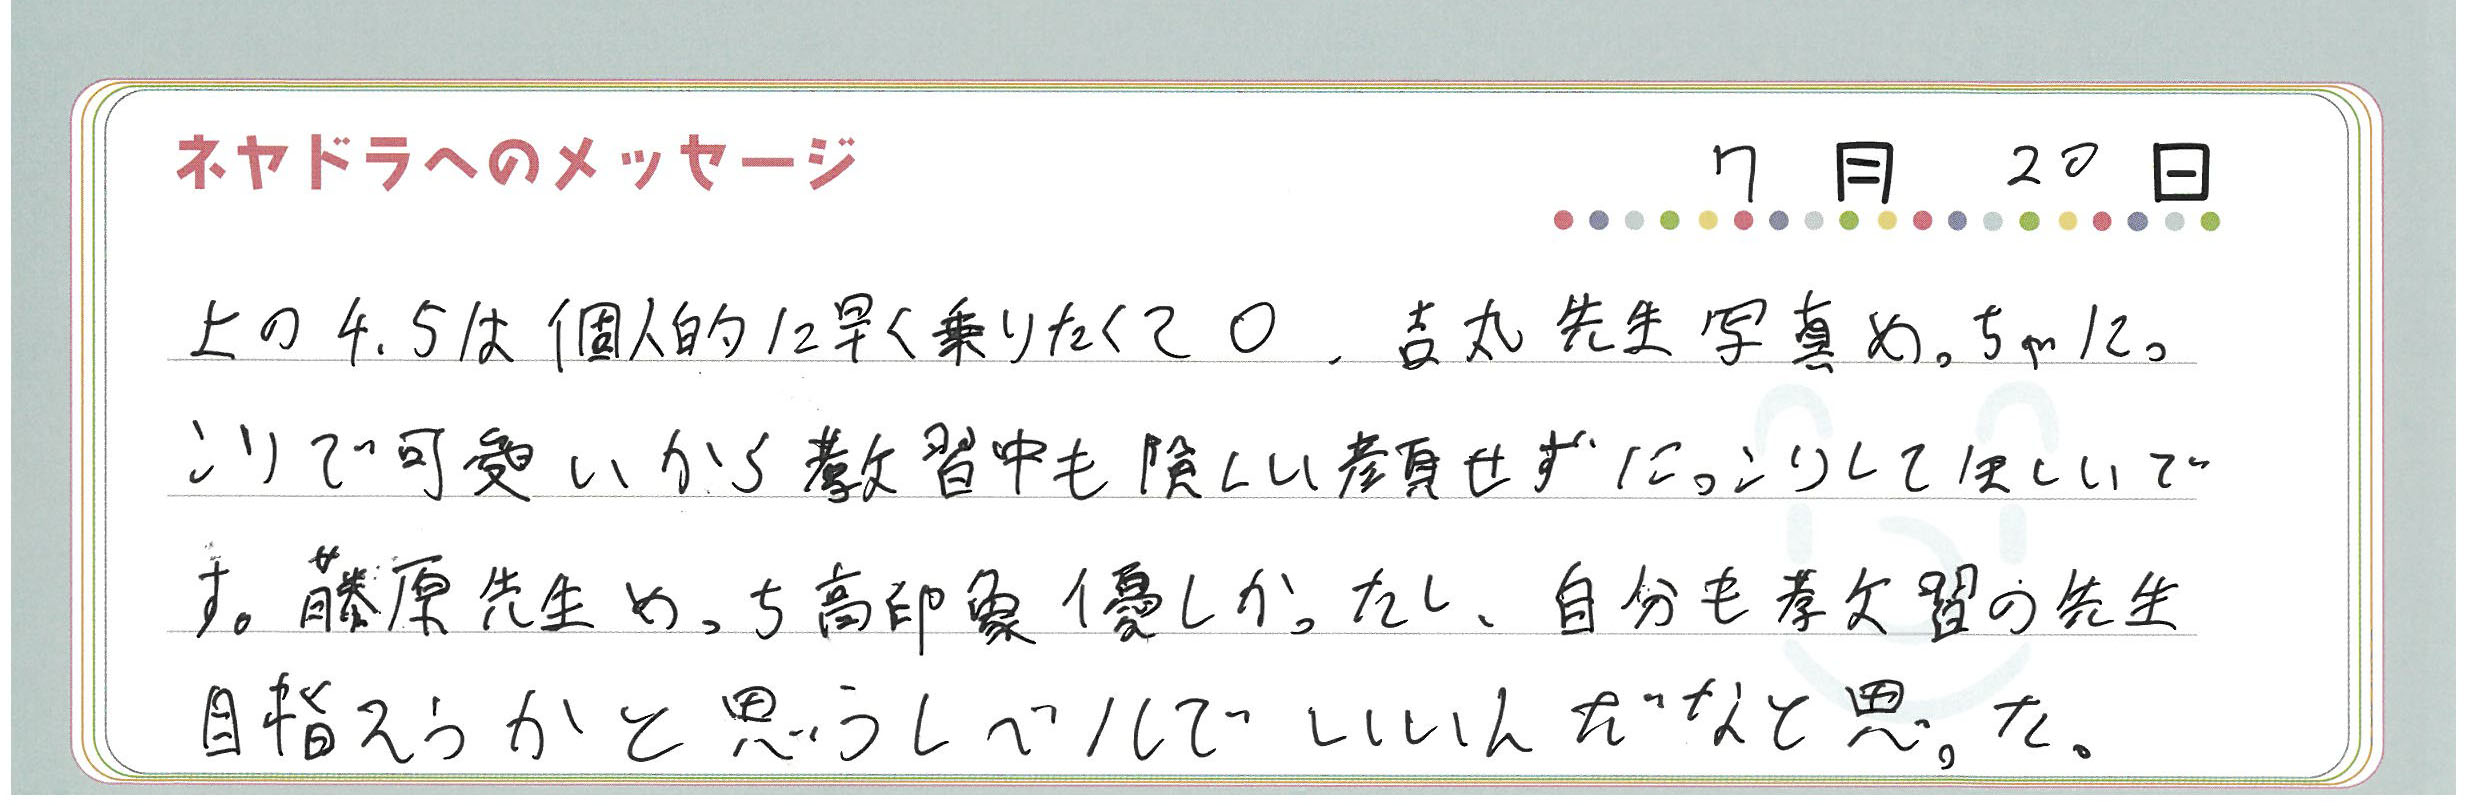 ネヤドラへのメッセージ
7月 20日
上の4.5は個人的に早く乗りたくて〇、吉丸先生写真めっちゃにっ
こりで可愛いから教習中も険しい顔せずにっこりしてほしいで
す。藤原先生めっち高印象優しかったし、自分も教習の先生
目指えうかと思うレベルでいいんだなと思った。